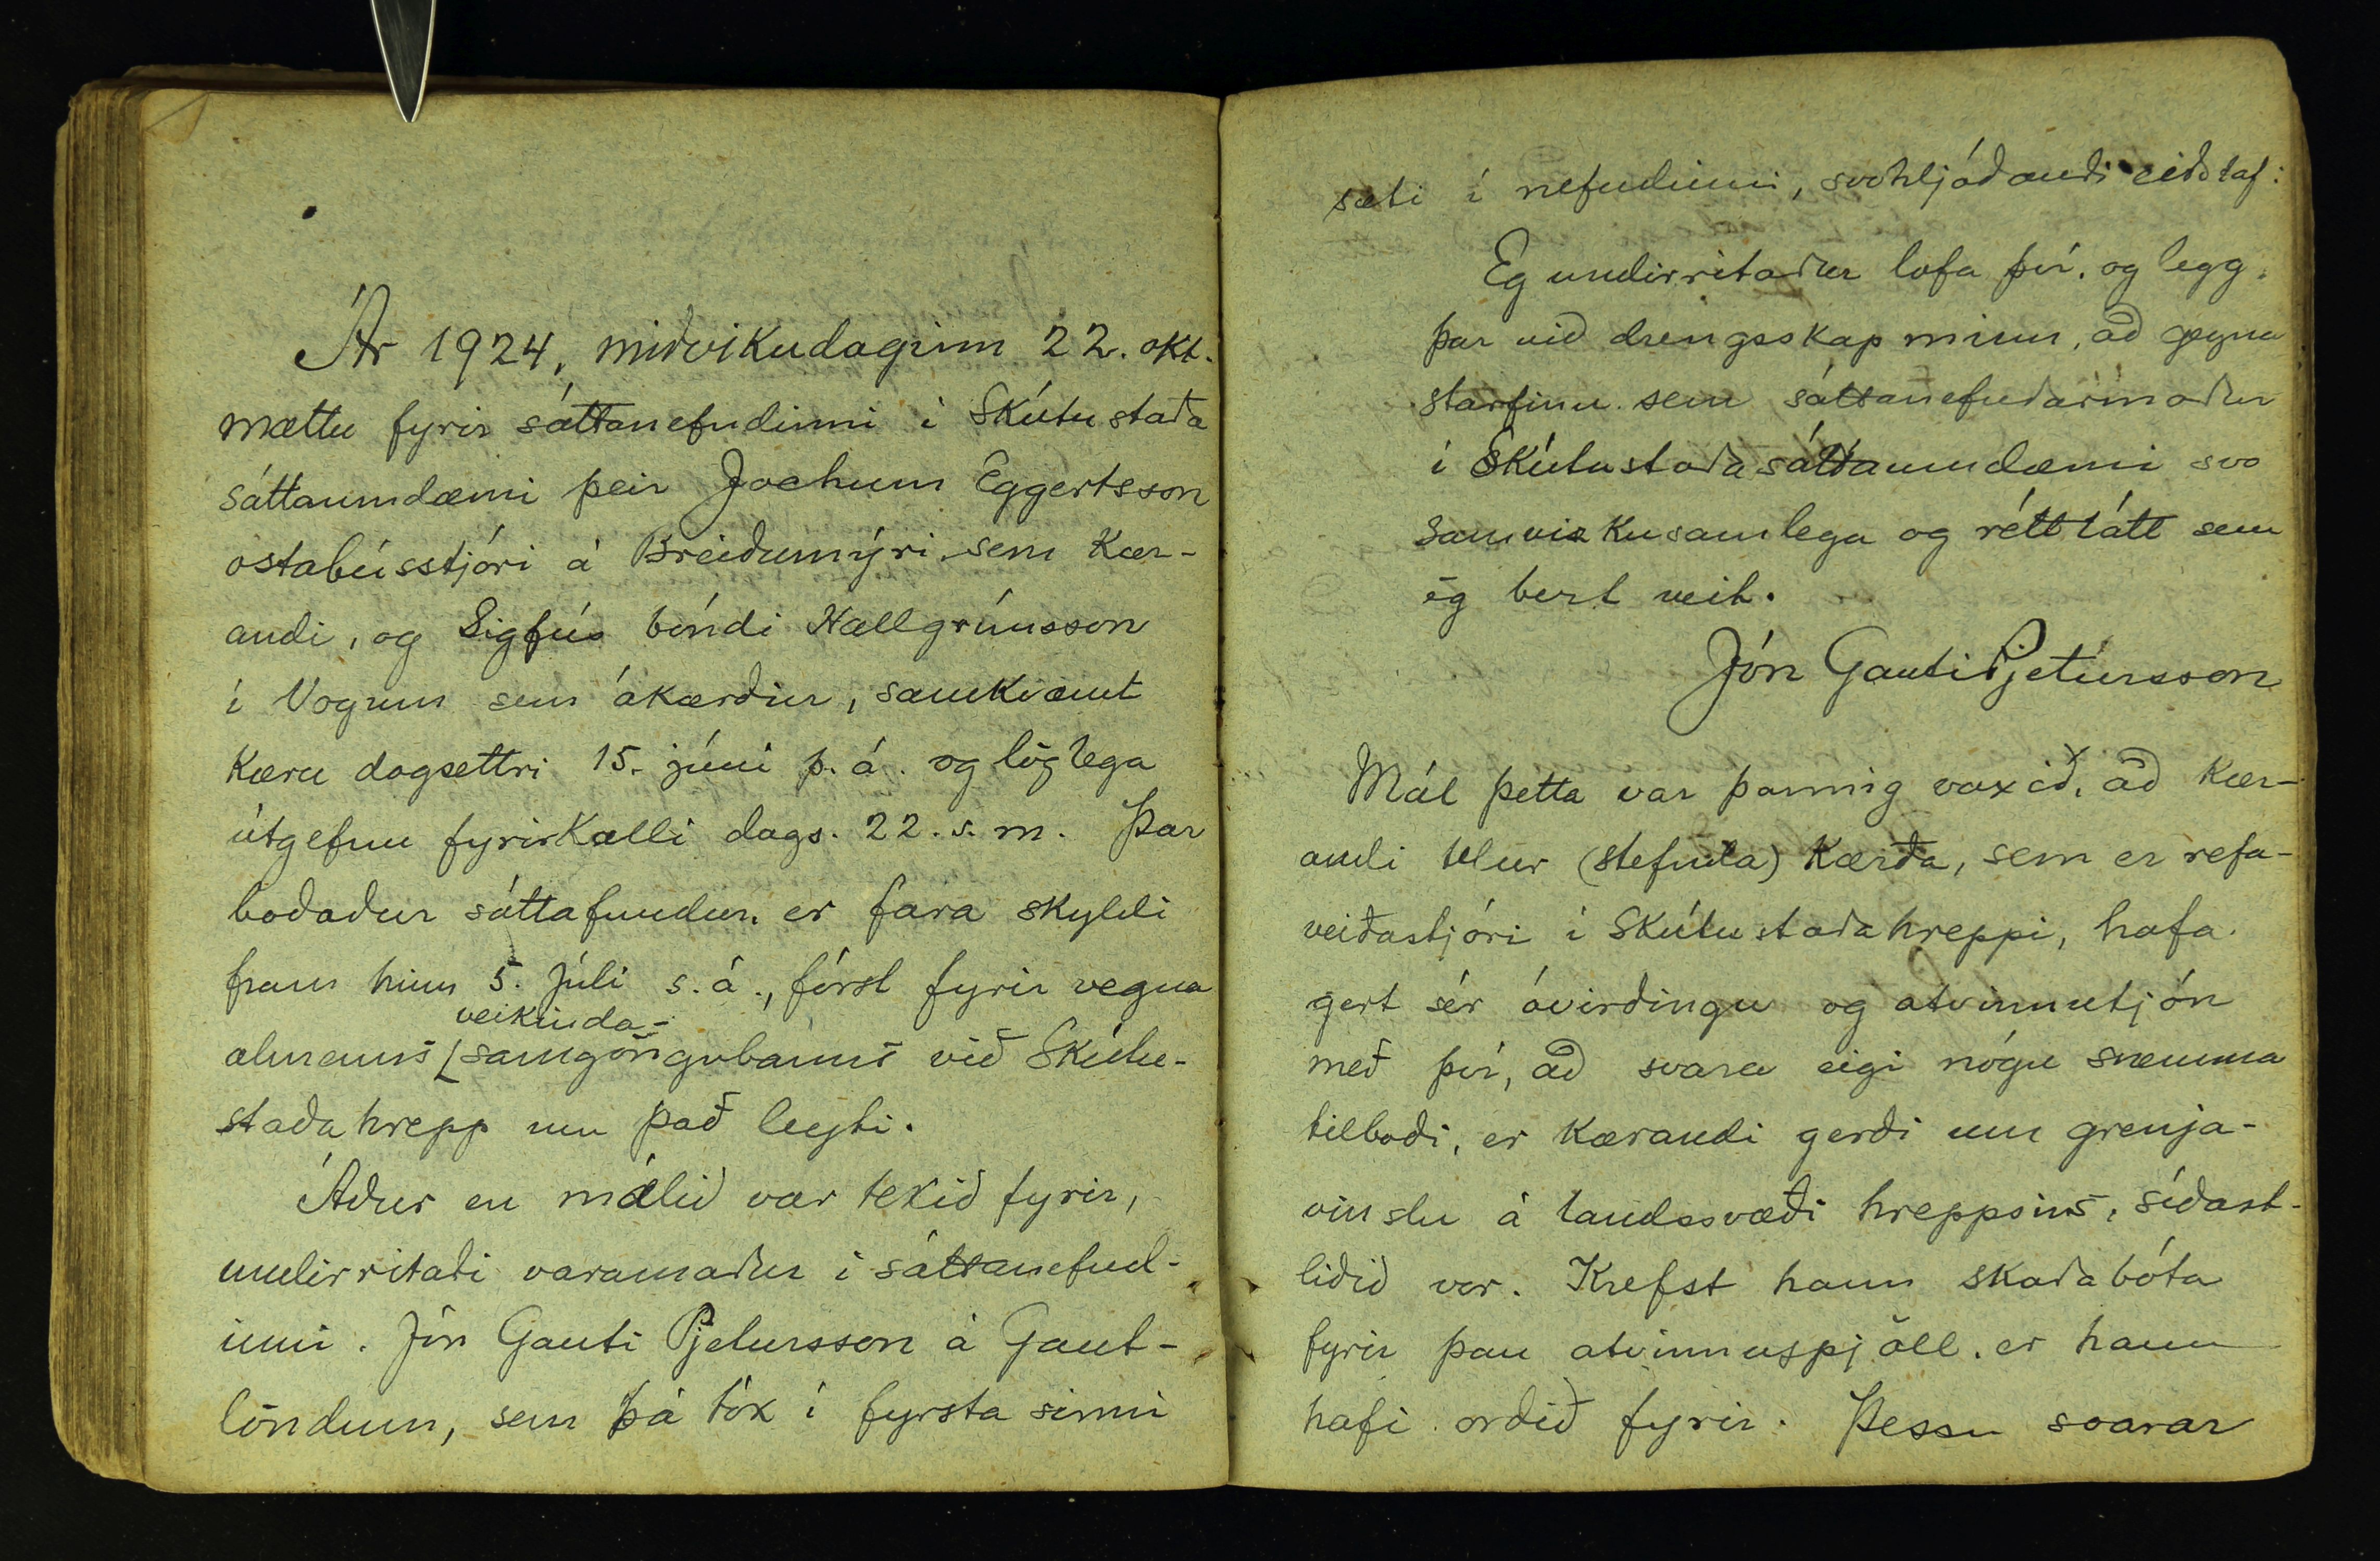 Ár 1924, miðvikudaginn 22. okt.
mættu fyrir sáttanefndinni í Skútustaða
sáttaumdæmi þeir Jochum Eggertsson
ostabússtjóri á Breiðumýri sem kær-
andi, og Sigfús bóndi Hallgrímsson
í Vogum sem ákærður, samkvæmt
kæru dagsettri 15. júní þ. á. og löglega
útgefnu fyrirkalli dags. 22. s. m. Þar
boðaður sáttafundur, er fara skyldi
fram hinn 5. Júlí s. á., fórst fyrir vegna
veikinda-
almenns samgöngubanns við Skútu-
staðahrepp um það leyti.
Áður en málið var tekið fyrir,
undirritaði varamaður í sáttanefnd-
inni. Jón Gauti Pjetursson á Gaut-
löndum, sem þá tók í fyrsta sinni
sæti í nefndinni, svohljóðandi eiðstaf:
Eg undirritaður lofa því, og legg
þar við drengsskap minn, að gegna
starfinu sem sáttanefndarmaður
í Skútustaðasáttaumdæmi svo
samvizkusamlega og réttlátt sem
ég bezt veit.
Jón Gauti Pjetursson
Mál þetta var þannig vaxið, að kær-
andi telur (stefnda) kærða, sem er refa-
veiðastjóri í Skútustaðahreppi, hafa
gert sér óvirðingu og atvinnutjón
með því, að svara eigi nógu snemma
tilboði, er kærandi gerði um grenja-
vinslu á landssvæði hreppsins, síðast-
liðið vor. Krefst hann skaðabóta
fyrir þau atvinnuspjöll, er hann
hafi orðið fyrir. Þessu svarar